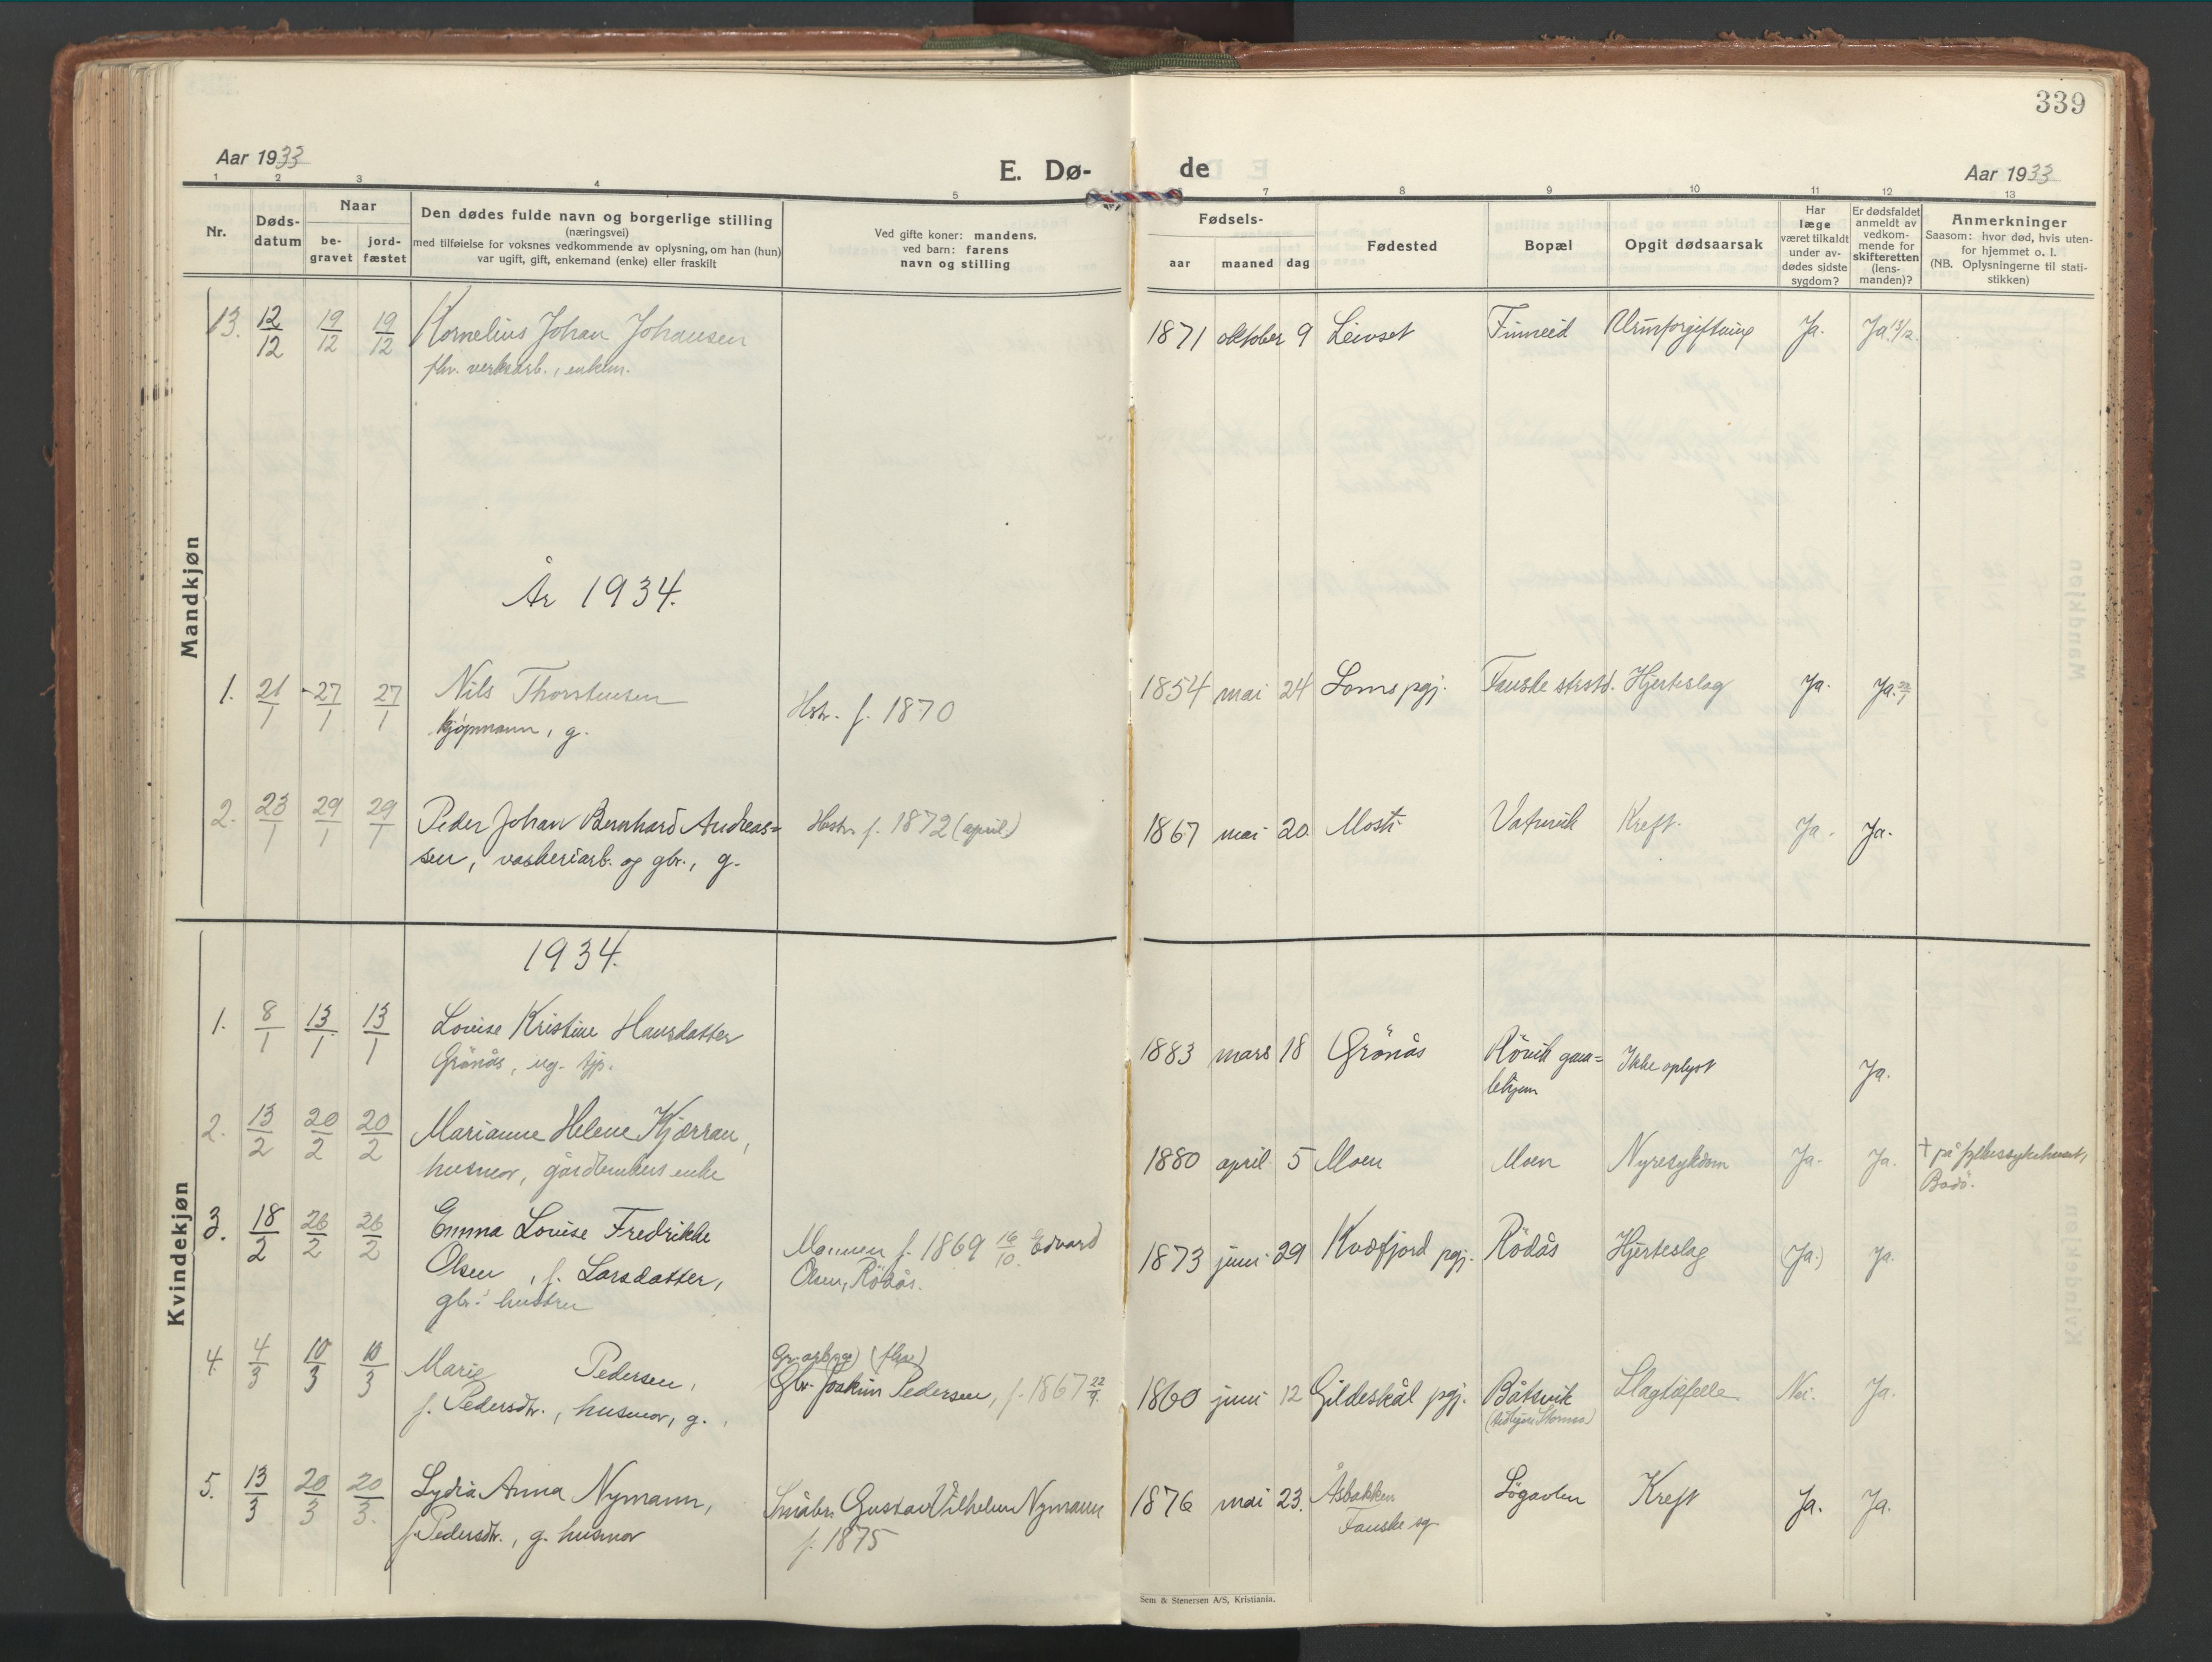 339
Aar 1933
E. Dø-
de
Aar 1933
1 2 3 4 5 7 8 9 10 11 12 13
Nr.
Døds-
datum
Naar
be-
gravet
jord-
fæstet
Den dødes fulde navn og borgerlige stilling
(næringsvei)
med tilføielse for voksnes vedkommende av oplysning, om han (hun)
var ugift, gift, enkemand (enke) eller fraskilt
Ved gifte koner: mandens.
ved barn: farens
navn og stilling
Fødsels-
aar maaned dag
Fødested
Bopæl
Opgit dødsaarsak
Har
læge
været tilkaldt
under av-
dødes sidste
sygdom?
Er dødsfaldet
anmeldt av
vedkom-
mende for
skifteretten
(lens-
manden)?
Anmerkninger
Saasom: hvor død, hvis uten-
for hjemmet o. l.
(NB. Oplysningerne til stati-
stikken)
Mandkjøn
13. 12/12 19/12 19/12 Kornelius Johan Johansen 1871 oktober 9 Leivset Finneid Ja. Ja 13/12.
fhv. verksarb., enkem.
År 1934.
1. 21/1 27/1 27/1 Nils Thorstensen Hstr. f. 1870 1854 mai 24 Loms pgj. Fauske strstd. Hjerteslag Ja. Ja. 22/1
kjøpmann, g.
2. 23/1 29/1 29/1 Peder Johan Bernhard Andreas= Hstr. f. 1872 (april) 1867 mai 20. Mosti Vatnvik Kreft. Ja. Ja.
sen, vaskeriarb. og gbr., g.
Kvindekjøn
1934.
1. 8/1 13/1 13/1 Louise Kristine Hansdatter 1883 mars 18 Grönås Rövik gam= Ikke oplyst Ja.
Grönås, ug. tjp. lehjem
2. 13/2 20/2 20/2 Marianne Helene Kjærran, 1880 april 5 Moen Moen Nyresykdom Ja. Ja. † på fylkessykehuset,
husmor, gårdbrukers enke Bodö.
3. 18/2 26/2 26/2 Emma Louise Fredrikke Mannen f. 1869 16/10 Edvard 1873 juni 29 Kvæfjord pgj. Rödås Hjerteslag (Ja.) Ja.
Olsen, f. Larsdatter, Olsen, Rödås.
gbr. hustru
4. 4/3 10/3 10/3 Marie Pedersen, Gbr. Joakim Pedersen, f. 1867 22/9. 1860 juni 12 Gildeskål pgj. Båtsvik Slagtilfelle Nei. Ja.
f. Pedersdtr., husmor, g.
5. 13/3 20/3 20/3. Lydia Anna Nymann, Småbr. Gustav Vilhelm Nymann 1876 mai 23. Åsbakken Løgavlen Kreft Ja. Ja.
f. Pedersdtr., g. husmor f. 1875 Fauske sg.
Sem & Stenersen A/S, Kristiania.